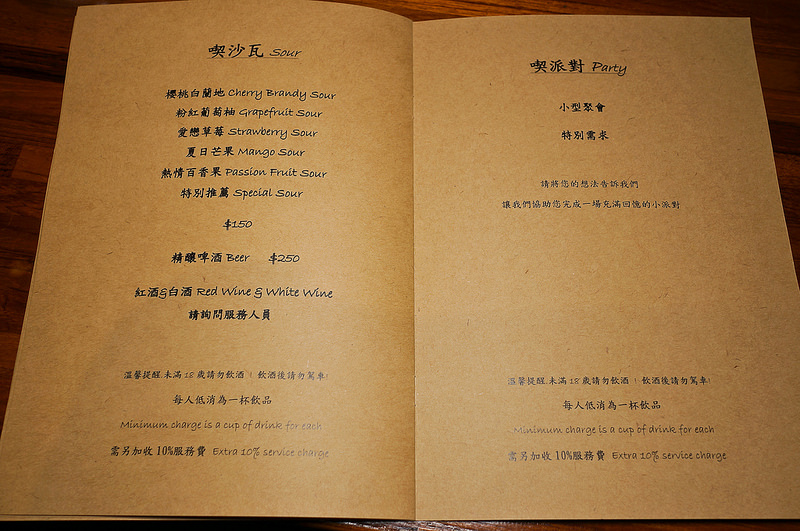 喫沙瓦 Sour
櫻桃白蘭地 Cherry Brandy Sour
粉紅葡萄柚 Grapefruit Sour
愛戀草莓 Strawberry Sour
夏日芒果 Mango Sour
熱情百香果 Passion Fruit Sour
特別推薦 Special Sour
$150
精釀啤酒 Beer $250
紅酒&白酒 Red Wine & White Wine
請詢問服務人員
溫馨提醒.未滿 18 歲請勿飲酒 ! 飲酒後請勿駕車!
每人低消為一杯飲品
Minimum charge is a cup of drink for each
需另加收 10%服務費 Extra 10% service charge
喫派對 Party
小型聚會
特別需求
請將您的想法告訴我們
讓我們協助您完成一場充滿回憶的小派對
溫馨提醒.未滿 18 歲請勿飲酒 ! 飲酒後請勿駕車!
每人低消為一杯飲品
Minimum charge is a cup of drink for each
需另加收 10%服務費 Extra 10% service charge